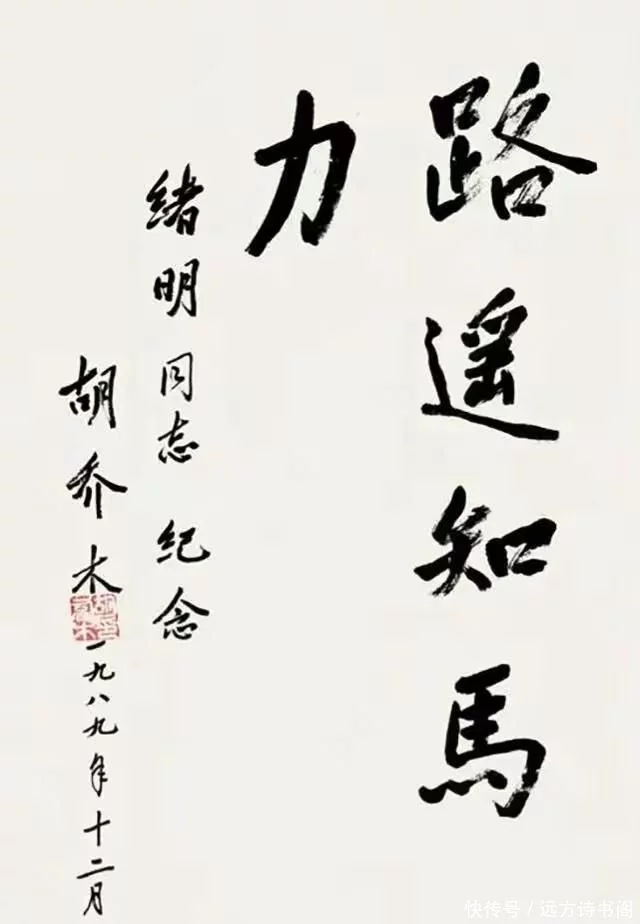 路遥知馬
力
绪明同志 纪念
胡乔木
一九八九年十二月
快传号/远方诗书阁